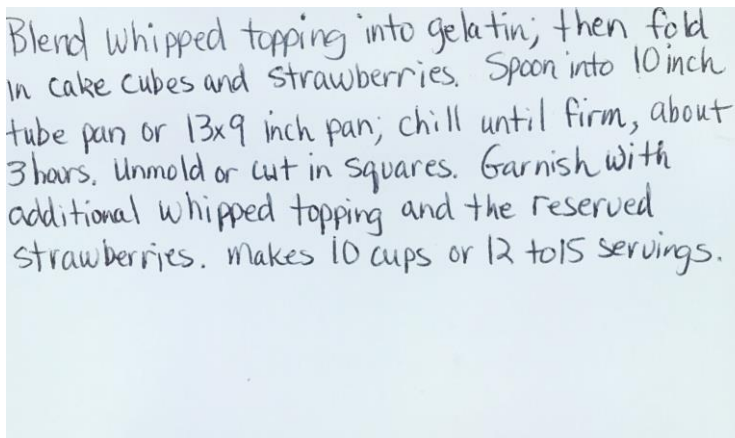 Blend whipped topping into gelatin; then fold
in cake cubes and strawberries. Spoon into 10 inch
tube pan or 13x9 inch pan; chill until firm, about
3 hours. Unmold or cut in squares. Garnish with
additional whipped topping and the reserved
strawberries. Makes 10 cups or 12 to 15 servings.